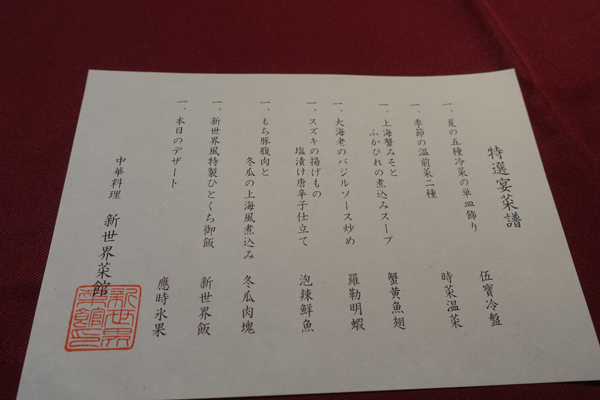 特選宴菜譜
一、夏の五種冷菜の単皿飾り 伍寶冷盤
一、季節の温前菜二種 時菜温菜
一、上海蟹みそと
ふかひれの煮込みスープ 蟹黄魚翅
一、大海老のバジルソース炒め 羅勒明蝦
一、スズキの揚げもの
塩漬け唐辛子仕立て 泡辣鮮魚
一、もち豚腹肉と
冬瓜の上海風煮込み 冬瓜肉塊
一、新世界風特製ひとくち御飯 新世界飯
一、本日のデザート 應時氷果
中華料理 新世界菜館
新世界
菜館印